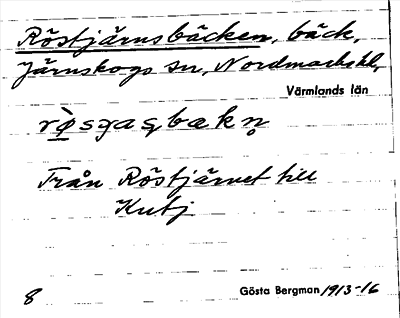 Röstjärnsbäcken, bäck,
Järnskogs sn, Nordmarks hd,
Värmlands län
Från Röstjärnet till
Kutj
8 Gösta Bergman 1913-16